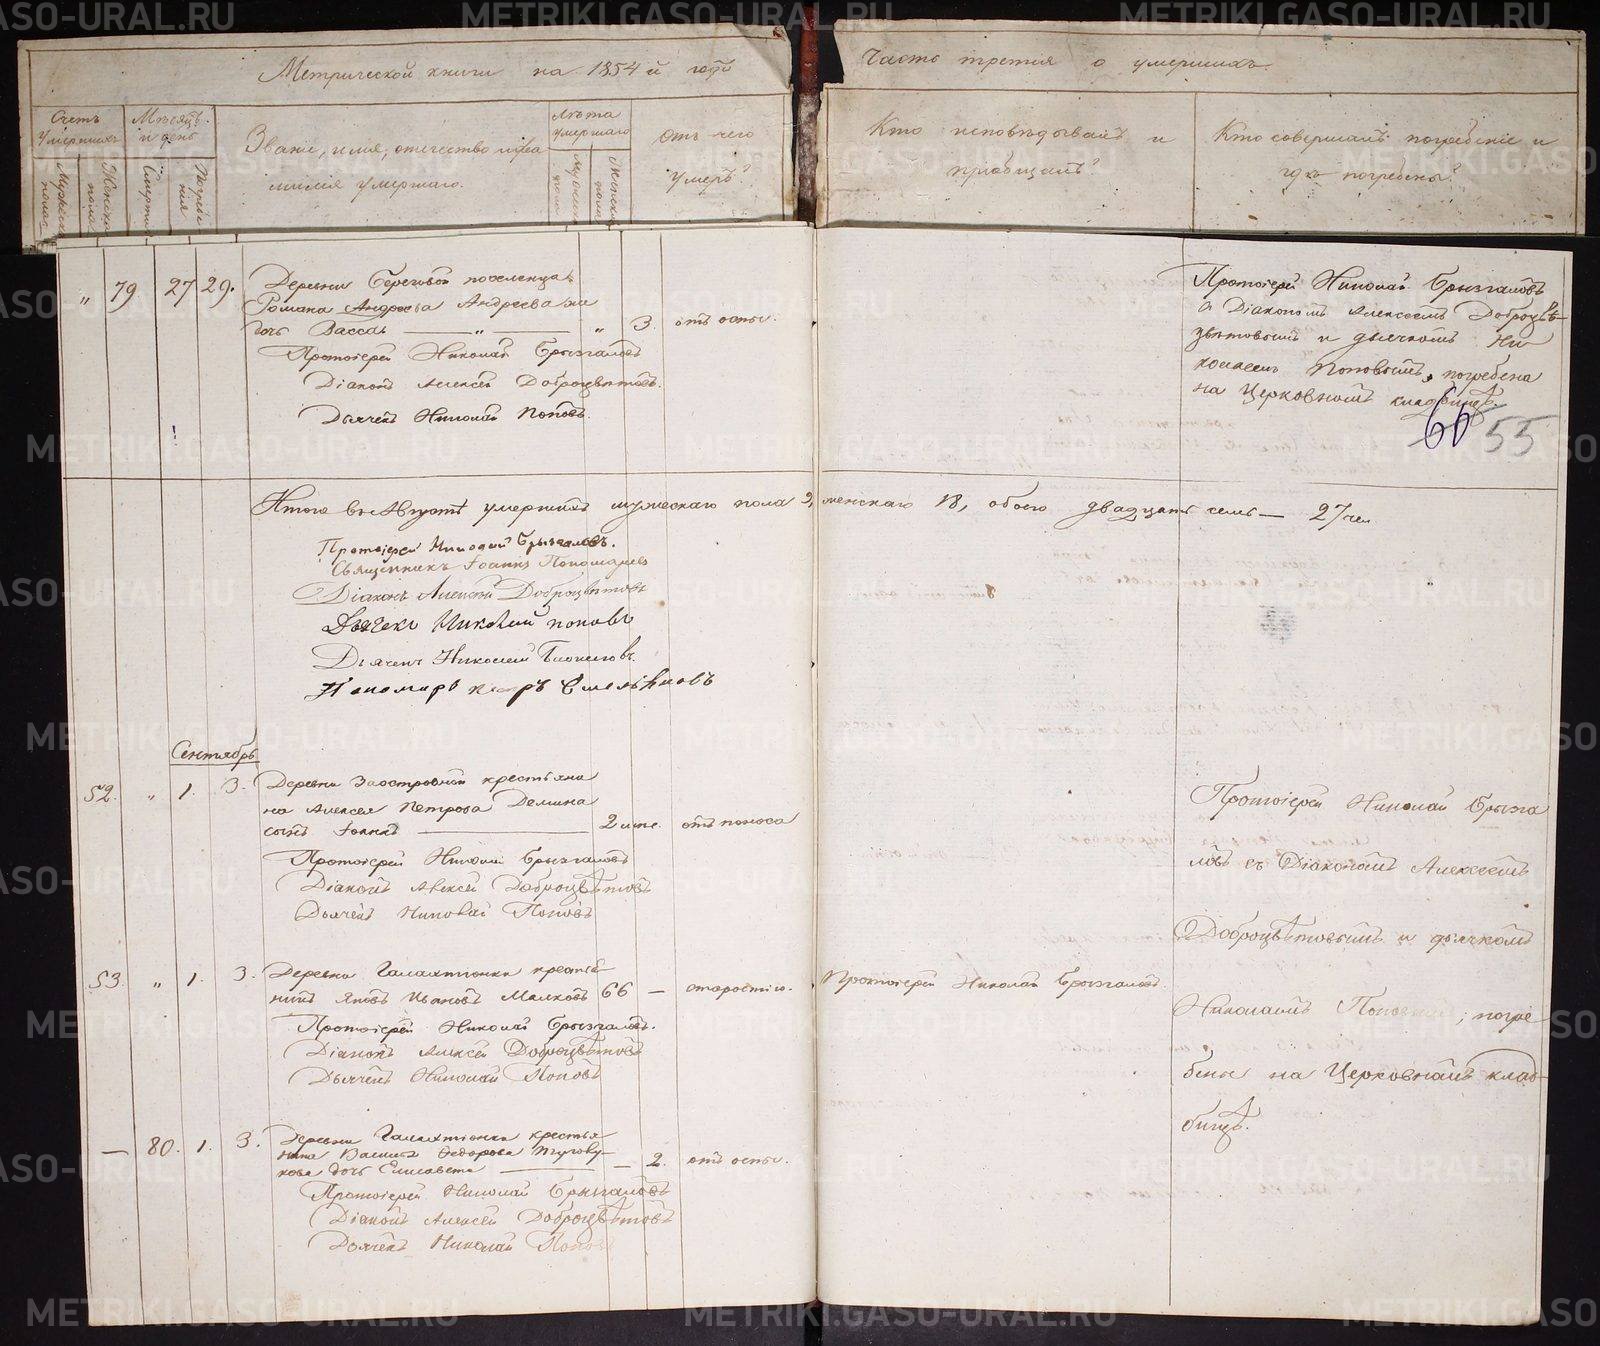 Метрической книги на 1854й годъ
Часть третія о умершихъ.
Счетъ умершихъ
Мѣсяцъ и день
Званіе, имя, отчество и фа
милія умершаго.
Лѣта умершаго
Отъ чего
умеръ?
Кто исповѣдывалъ и
пріобщалъ?
Кто совершалъ погребеніе и
гдѣ погребены?
Мужеска пола
Женска пола
Смерти
Погребенія
Мужеска пола
Женска пола
" 79 27 29. Деревни Береговой поселенца
Романа Андреева Андреева же
дочь Васса — " — " 3. отъ оспы.
Протоіерей Николай Брызгаловъ
Діаконъ Алексѣй Доброцвѣтовъ.
Дьячекъ Николай Поповъ.
Протоіерей Николай Брызгаловъ
съ Діакономъ Алексѣемъ Доброцвѣ-
товымъ и дьячкомъ Ни
колаемъ Поповымъ, погребена
на Церковномъ кладбищѣ.
60 55
Итого въ Августѣ умершихъ мужескаго пола 9, женскаго 18, обоего двадцать семь — 27 чел
Протоіерей Николай Брызгаловъ.
Священникъ Іоаннъ Пономаревъ
Діаконъ Алексѣй Доброцвѣтовъ
Дьячекъ Николай Поповъ
Дьячекъ Николай
Пономарь Петръ Емельяновъ
Сентябрь
52. " 1. 3. Деревни Заостровной крестьяни
на Алексея Петрова Демина
сынъ Іоаннъ — 2 мѣс. отъ поноса
Протоіерей Николай Брызгаловъ
Діаконъ Алексѣй Доброцвѣтовъ
Дьячекъ Николай Поповъ
Протоіерей Николай Брызга
ловъ съ Діакономъ Алексѣемъ
Доброцвѣтовымъ и дьячкомъ
Николаемъ Поповымъ; погре
бены на Церковномъ клад-
бищѣ.
53. " 1. 3. Деревни Галахтіонки крестья-
нинъ Яковъ Ивановъ Малковъ 66 — старостію.
Протоіерей Николай Брызгаловъ.
Протоіерей Николай Брызгаловъ.
Діаконъ Алексѣй Доброцвѣтовъ
Дьячекъ Николай Поповъ
— 80. 1. 3. Деревни Галахтіонки крестья
нина Василья Федорова
дочь Елисавета — 2. отъ оспы.
Протоіерей Николай Брызгаловъ
Діаконъ Алексѣй Доброцвѣтовъ
Дьячекъ Николай Поповъ
METRIKI.GASO-URAL.RU